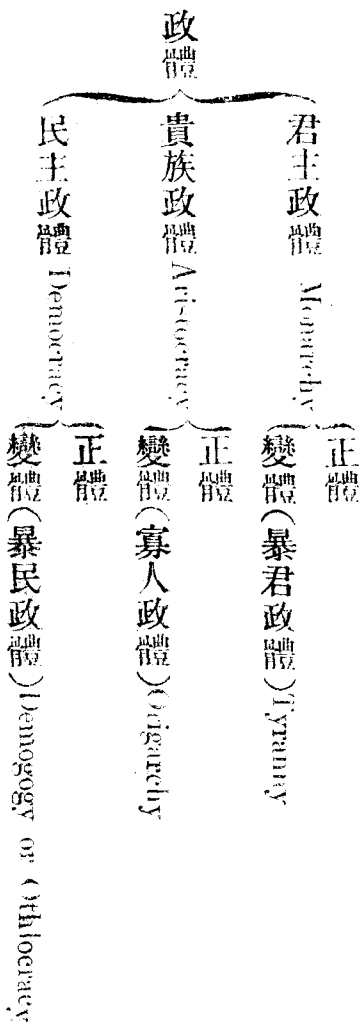 政體
君主政體 Monarchy
正體
變體(暴君政體)Tyranny
貴族政體 Aristocracy
正體
變體(寡人政體)Oligarchy
民主政體 Democracy
正體
變體(暴民政體)Demogogy or Othlocracy